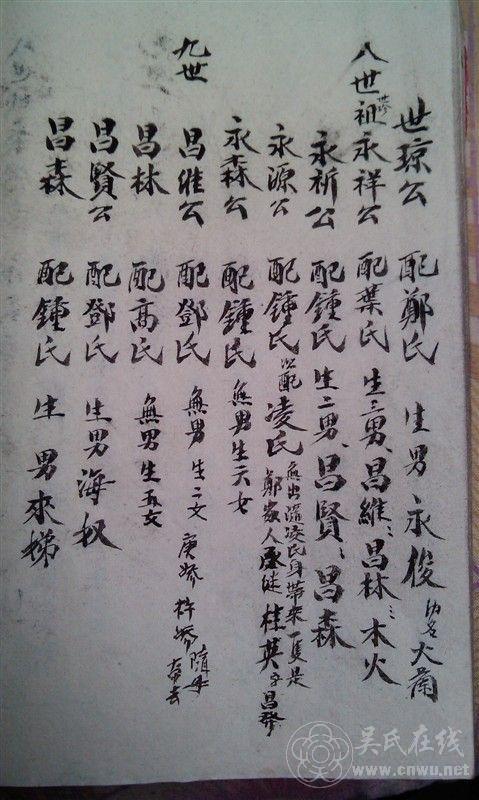 世琼公 配鄭氏 生男 永俊 幼名 火蘭
八世祖 永祥公 配葉氏 生三男、昌維、昌林、木火
永祈公 配鍾氏 生二男、昌賢、昌森
永源公 配鍾氏 配凌氏 無出 凌氏身帶來一隻是鄭家人 桂英 昌發
永森公 配鍾氏 無男生六女
九世 昌維公 配鄧氏 無男 生二女 隨母
昌林 配高氏 無男生五女
昌賢公 配鄧氏 生男海
昌森 配鍾氏 生男來娣
吴氏在线
www.cnwu.net